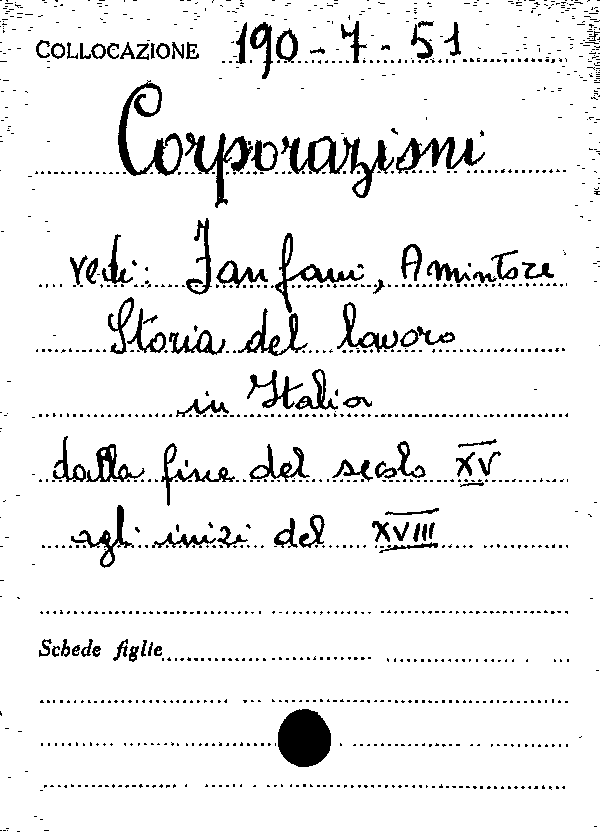 COLLOCAZIONE 190-7-51
Corporazioni
vedi: Fanfani, Amintore
Storia del lavoro
in Italia
dalla fine del secolo XV
agli inizi del XVIII
Schede figlie